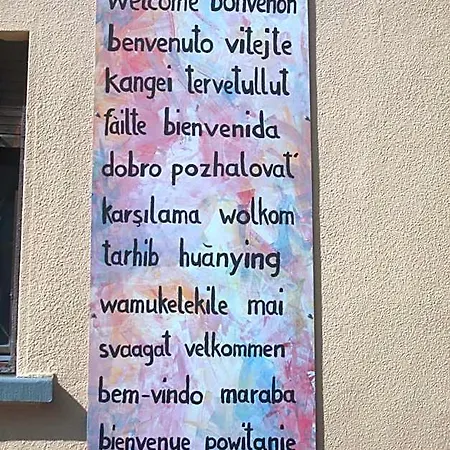 Welcome bonvenon
benvenuto vitejte
kangei tervetullut
fàilte bienvenida
dobro pozhalovat'
karşılama wolkom
tarhib huānying
wamukelekile mai
svaagat velkommen
bem-vindo maraba
bienvenue powitanie